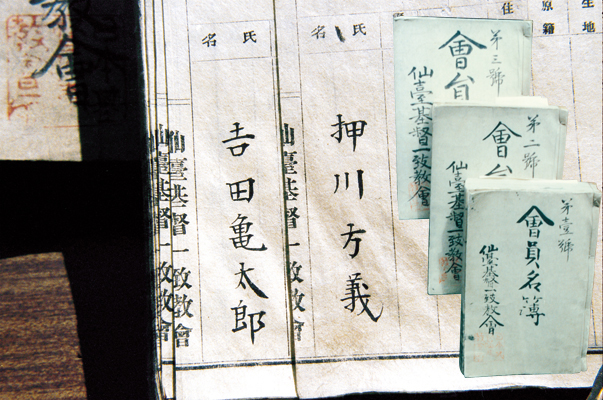 生地
原籍
住
氏名
押川方義
仙臺基督一致教會
氏名
吉田亀太郎
仙臺基督一致教會
仙臺基督一致教會
教會
第三號
會員
仙臺基督一致教會
第二號
會員
仙臺基督一致教會
第壹號
會員名簿
仙臺基督一致教會